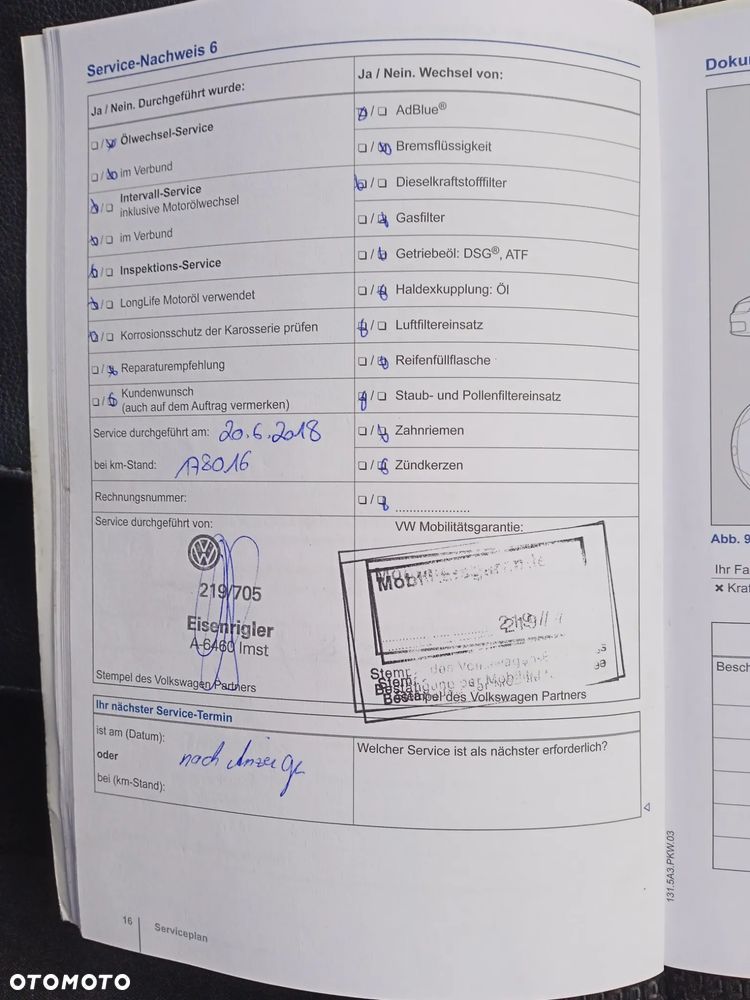 Service-Nachweis 6
Ja / Nein. Durchgeführt wurde:
❑ / ❑ Ölwechsel-Service
❑ / ❑ im Verbund
❑ / ❑ Intervall-Service
inklusive Motorölwechsel
❑ / ❑ im Verbund
❑ / ❑ Inspektions-Service
❑ / ❑ LongLife Motoröl verwendet
❑ / ❑ Korrosionsschutz der Karosserie prüfen
❑ / ❑ Reparaturempfehlung
❑ / ❑ Kundenwunsch
(auch auf dem Auftrag vermerken)
Service durchgeführt am: 20.6.2018
bei km-Stand: 178016
Rechnungsnummer:
Service durchgeführt von:
219/705
Eisenrigler
A-6460 Imst
Stempel des Volkswagen Partners
Ja / Nein. Wechsel von:
❑ / ❑ AdBlue®
❑ / ❑ Bremsflüssigkeit
❑ / ❑ Dieselkraftstofffilter
❑ / ❑ Gasfilter
❑ / ❑ Getriebeöl: DSG®, ATF
❑ / ❑ Haldexkupplung: Öl
❑ / ❑ Luftfiltereinsatz
❑ / ❑ Reifenfüllflasche
❑ / ❑ Staub- und Pollenfiltereinsatz
❑ / ❑ Zahnriemen
❑ / ❑ Zündkerzen
❑ / ❑ .....................
VW Mobilitätsgarantie:
Stempel des Volkswagen Partners
Ihr nächster Service-Termin
ist am (Datum):
oder
bei (km-Stand):
nach Anzeige
Welcher Service ist als nächster erforderlich?
16
Serviceplan
131.5A3.PKW.03
Abb. 9
Ihr Fa
OTOMOTO